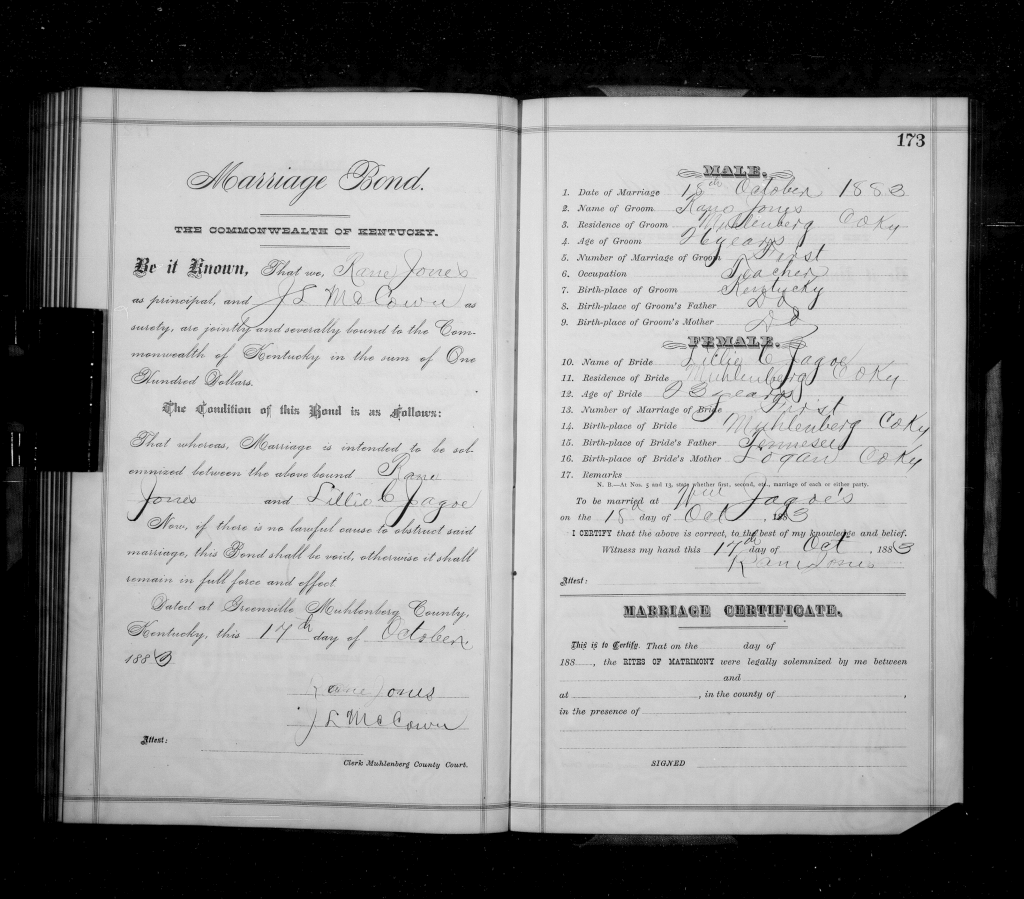 Marriage Bond.
THE COMMONWEALTH OF KENTUCKY.
Be it Known, That we, Rane Jones
as principal, and J L McCown as
surety, are jointly and severally bound to the Com-
monwealth of Kentucky in the sum of One
Hundred Dollars.
The Condition of this Bond is as Follows:
That whereas, Marriage is intended to be sol-
emnized between the above bound Rane
Jones and Lillie C Jagoe
Now, if there is no lawful cause to obstruct said
marriage, this Bond shall be void, otherwise it shall
remain in full force and effect.
Dated at Greenville Muhlenberg County,
Kentucky, this 17th day of October
1883
Rane Jones
J L McCown
Attest:
Clerk Muhlenberg County Court.
173
MALE.
1. Date of Marriage 18th October 1883
2. Name of Groom Rane Jones
3. Residence of Groom Muhlenberg Co Ky
4. Age of Groom 26 years
5. Number of Marriage of Groom First
6. Occupation Teacher
7. Birth-place of Groom Kentucky
8. Birth-place of Groom's Father Do
9. Birth-place of Groom's Mother Do
FEMALE.
10. Name of Bride Lillie C Jagoe
11. Residence of Bride Muhlenberg Co Ky
12. Age of Bride 23 years
13. Number of Marriage of Bride First
14. Birth-place of Bride Muhlenberg Co Ky
15. Birth-place of Bride's Father Tennessee
16. Birth-place of Bride's Mother Logan Co Ky
17. Remarks
N. B.—At Nos. 5 and 13, state whether first, second, etc., marriage of each or either party.
To be married at Jagoe's
on the 18 day of Oct 1883
I CERTIFY that the above is correct, to the best of my knowledge and belief.
Witness my hand this 17th day of Oct, 1883
Rane Jones
Attest:
MARRIAGE CERTIFICATE.
This is to Certify, That on the day of
188 , the RITES OF MATRIMONY were legally solemnized by me between
and
at , in the county of ,
in the presence of
SIGNED